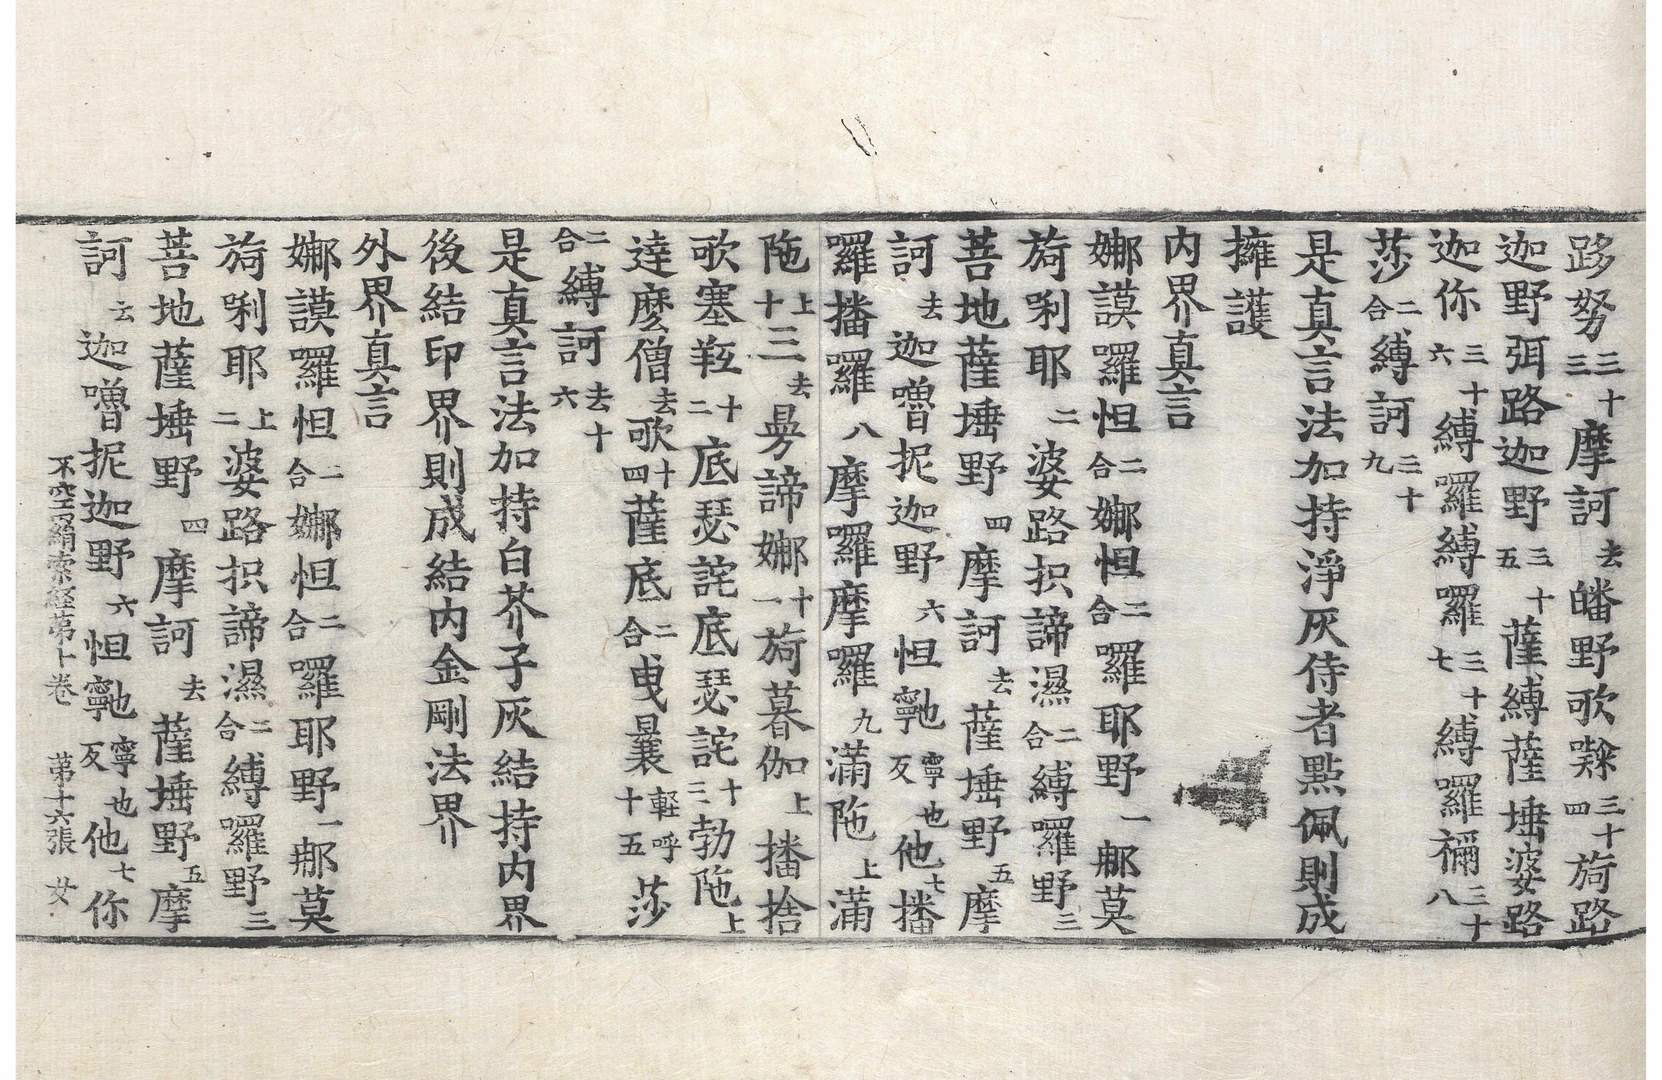 跢努三十三摩訶去皤野歌㗚三十四旖路
迦野弭路迦野三十五薩縛薩埵婆路
迦你三十六縛羅縛囉三十七縛囉禰三十八
莎二合縛訶三十九
是真言法加持淨灰侍者點佩則成
擁護
內界真言
娜謨羅怛二合娜怛二合囉耶野一那莫
旖唎耶二婆路抧諦濕二合縛囉野三
菩地薩埵野四摩訶去薩埵野五摩
訶去迦嚕抳迦野六怛寧也寧也反他七播
囉播囉八摩囉摩囉九滿陁上滿
陁上十三去髣諦娜十一旖暮伽上播捨
歌塞䩭十二底瑟詫底瑟詫十三勃陁上
達麼僧去歌十四薩底二合曳曩輕呼十五莎
二合縛訶去十六
是真言法加持白芥子灰結持內界
後結印界則成結內金剛法界
外界真言
娜謨囉怛二合娜怛二合囉耶野一那莫
旖唎耶上二婆路抧諦濕二合縛囉野三
菩地薩埵野四摩訶去薩埵野五摩
訶去迦嚕抳迦野六怛寧也寧也反他七你
不空羂索経第十卷 第十六張 女